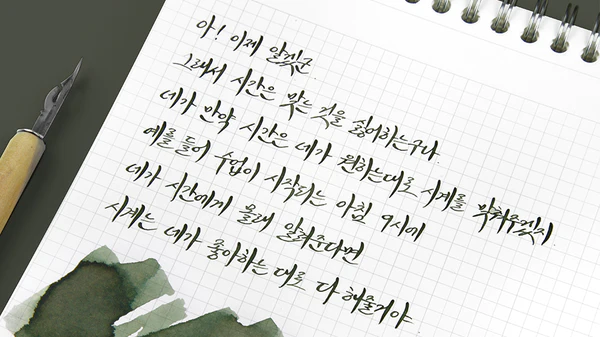 아! 이제 알겠군.
그래서 시간은 맞는 것을 싫어하는구나.
네가 만약 시간은 네가 원하는대로 시계를 맞춰주겠지.
예를 들어 수업이 시작되는 아침 9시에
네가 시간에게 몰래 알려준다면
시계는 네가 좋아하는 대로 다 해줄거야.